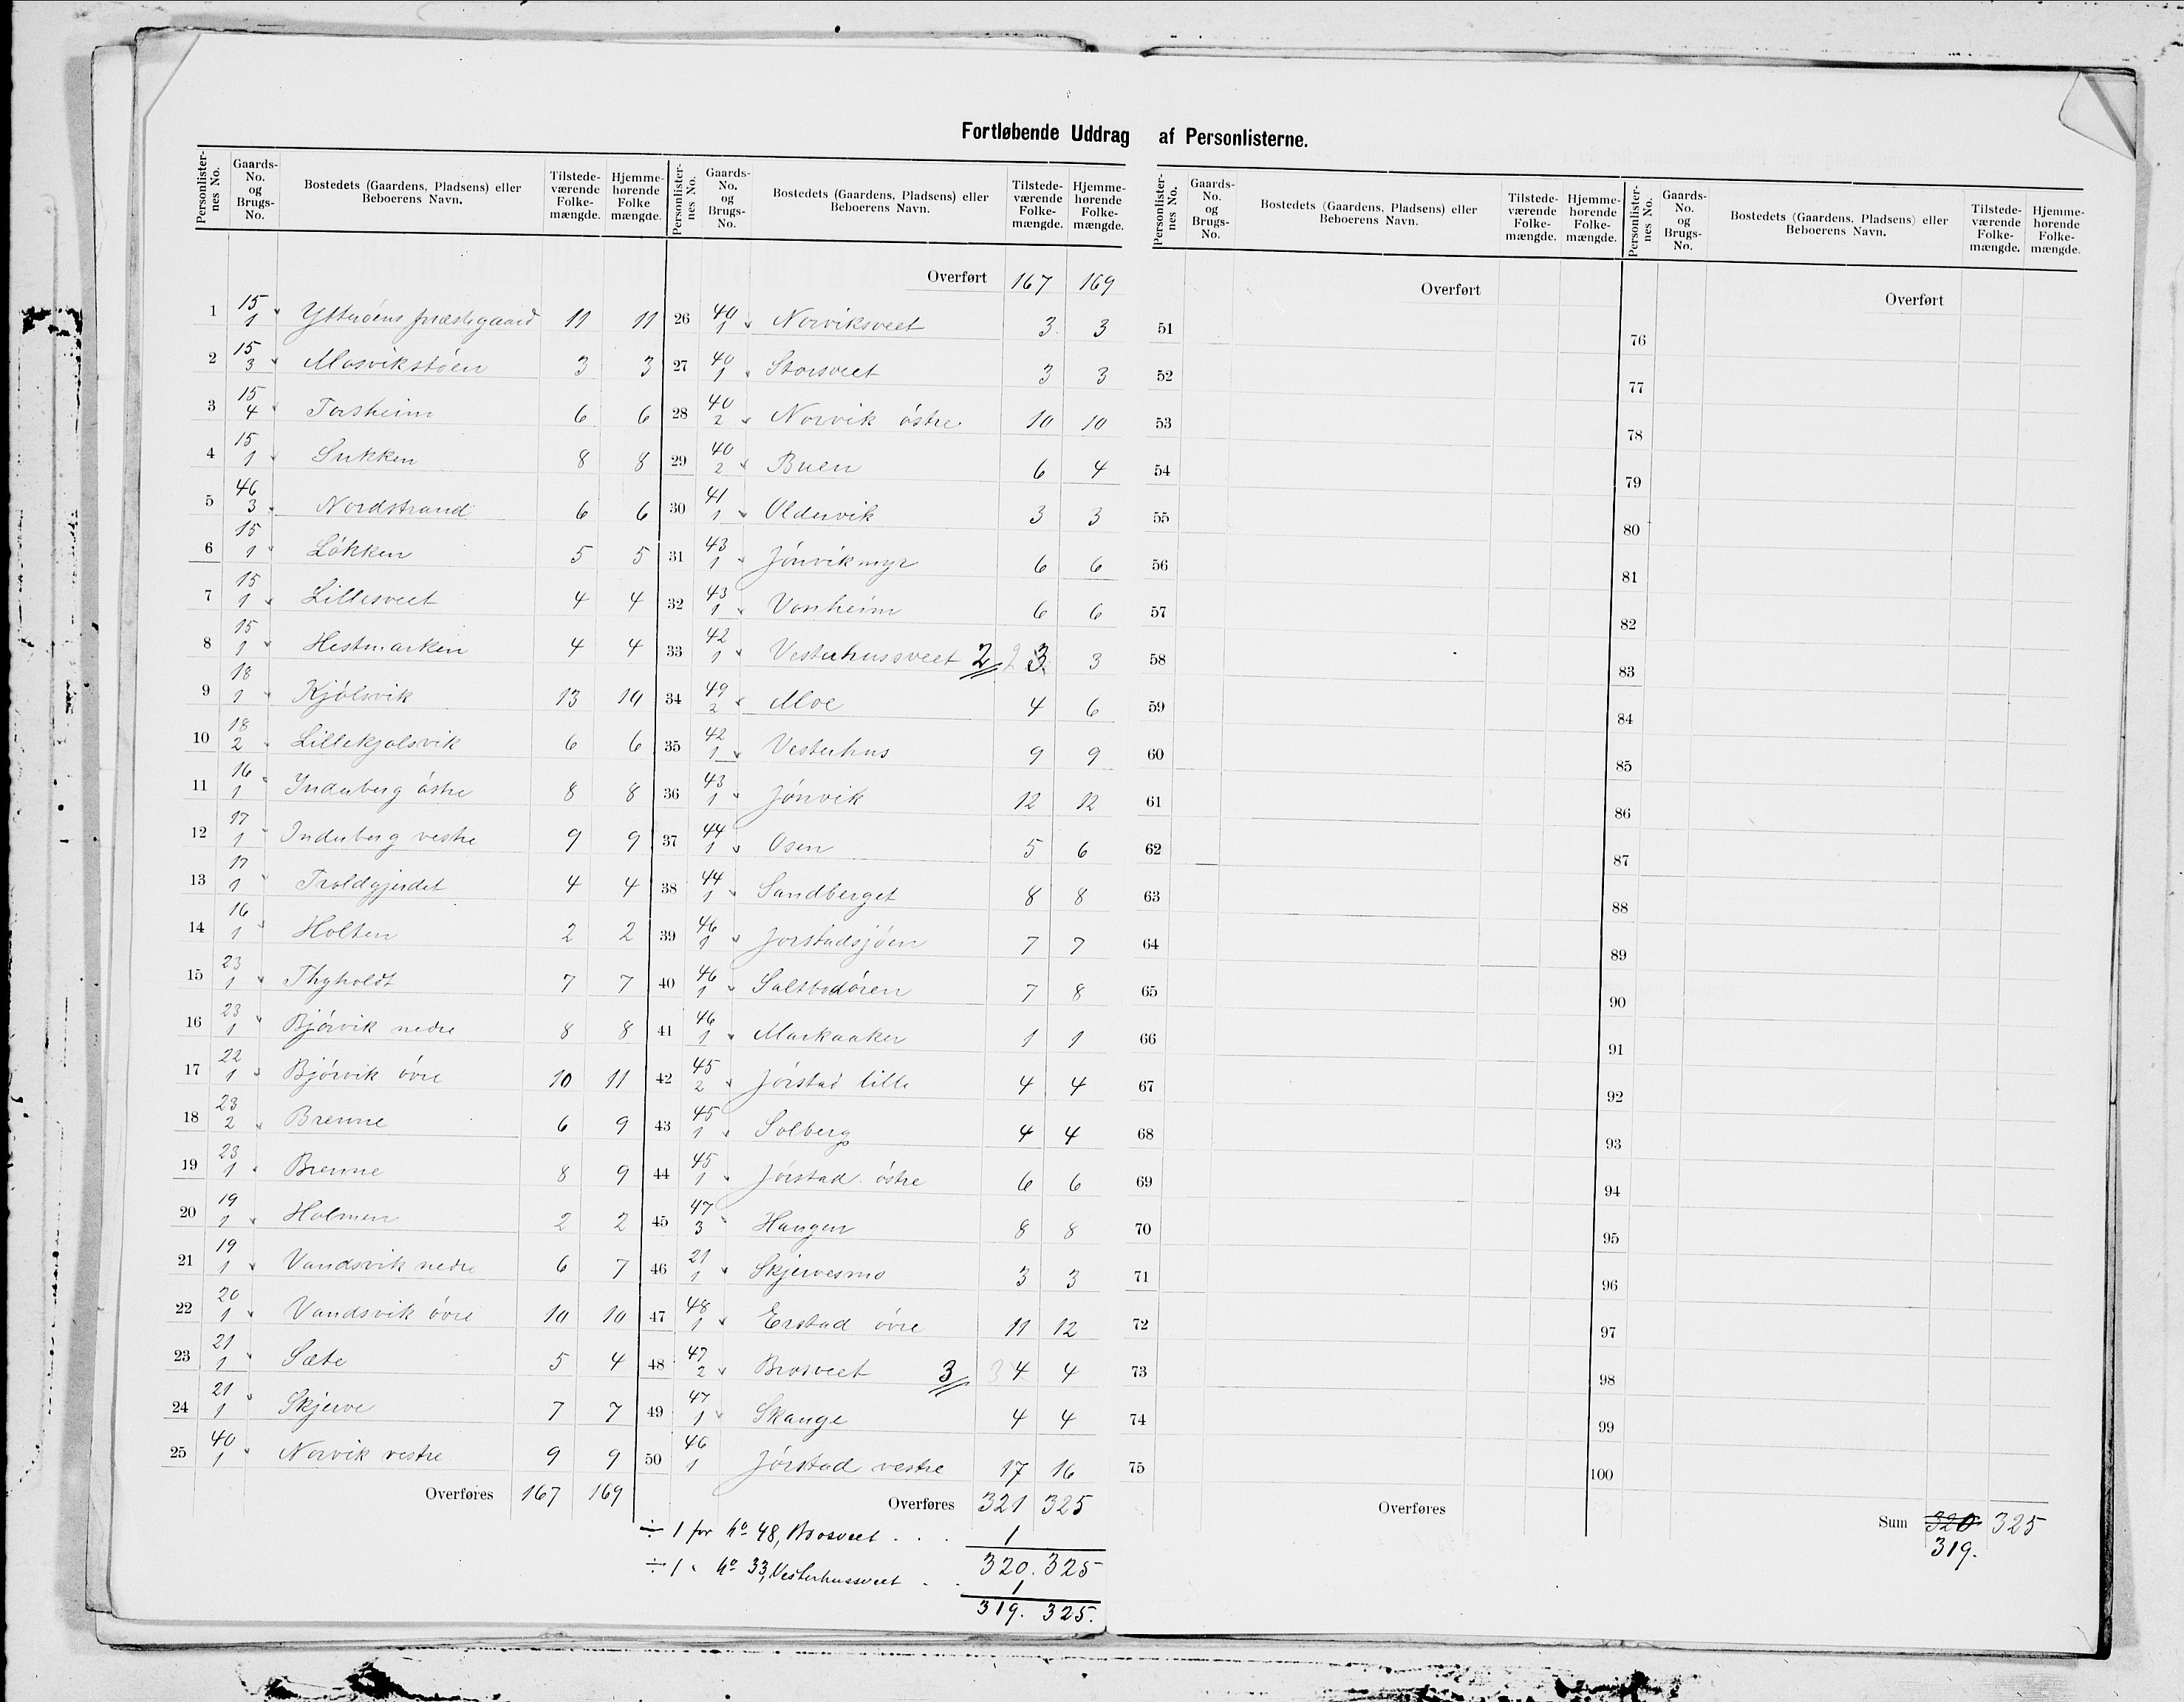 Fortløbende Uddrag af Personlisterne.
Personlister-nes No. Gaards-No. og Brugs-No. Bostedets (Gaardens, Pladsens) eller Beboerens Navn. Tilstede-værende Folke-mængde. Hjemme-hørende Folke mængde.
1 15/1 Ytterøens præstegaard 11 11
2 15/3 Mosvikstøen 3 3
3 15/4 Torsheim 6 6
4 15/1 Sukken 8 8
5 46/3 Nordstrand 6 6
6 15/1 Løkken 5 5
7 15/1 Lillesveet 4 4
8 15/1 Hestmarken 4 4
9 18/1 Kjølsvik 13 10
10 18/2 Lillekjølsvik 6 6
11 16/1 Inderberg østre 8 8
12 17/1 Inderberg vestre 9 9
13 17/1 Troldgjerdet 4 4
14 16/1 Holten 2 2
15 23/1 Thyholdt 7 7
16 23/1 Bjørvik nedre 8 8
17 22/1 Bjørvik øvre 10 11
18 23/2 Brenne 6 9
19 23/1 Brenne 8 9
20 19/1 Holmen 2 2
21 19/1 Vandsvik nedre 6 7
22 20/1 Vandsvik øvre 10 10
23 21/1 Sæte 5 4
24 21/1 Skjerve 7 7
25 40/1 Norvik vestre 9 9
Overføres 167 169
Personlister-nes No. Gaards-No. og Brugs-No. Bostedets (Gaardens, Pladsens) eller Beboerens Navn. Tilstede-værende Folke-mængde. Hjemme-hørende Folke-mængde.
Overført 167 169
26 40/1 Norviksveet 3 3
27 40/1 Storsveet 3 3
28 40/2 Norvik østre 10 10
29 40/2 Buen 6 4
30 41/1 Oldervik 3 3
31 43/1 Jønvikmyr 6 6
32 43/1 Vonheim 6 6
33 42/1 Vesterhussveet 2 2 3 3
34 49/2 Moe 4 6
35 42/1 Vesterhus 9 9
36 43/1 Jønvik 12 12
37 44/1 Osen 5 6
38 44/1 Sandberget 8 8
39 46/1 Jørstadsjøen 7 7
40 46/1 Saltbodøren 7 8
41 46/1 Markaaker 1 1
42 45/2 Jørstad lille 4 4
43 45/1 Solberg 4 4
44 45/1 Jørstad østre 6 6
45 47/3 Haugen 8 8
46 21/1 Skjervesmo 3 3
47 48/1 Erstad øvre 11 12
48 47/2 Brosveet 3 3 4 4
49 47/1 Skange 4 4
50 46/1 Jørstad vestre 17 16
Overføres 321 325
÷ 1 for No 48, Brosveet . . . 1
320. 325
÷ 1 " No 33, Vesterhussveet . . 1
319. 325.
Personlister-nes No. Gaards-No. og Brugs-No. Bostedets (Gaardens, Pladsens) eller Beboerens Navn. Tilstede-værende Folke-mængde. Hjemme-hørende Folke-mængde.
Overført
51
52
53
54
55
56
57
58
59
60
61
62
63
64
65
66
67
68
69
70
71
72
73
74
75
Overføres
Personlister-nes No. Gaards-No. og Brugs-No. Bostedets (Gaardens, Pladsens) eller Beboerens Navn. Tilstede-værende Folke-mængde. Hjemme-hørende Folke-mængde.
Overført
76
77
78
79
80
81
82
83
84
85
86
87
88
89
90
91
92
93
94
95
96
97
98
99
100
Sum 320 325
319.